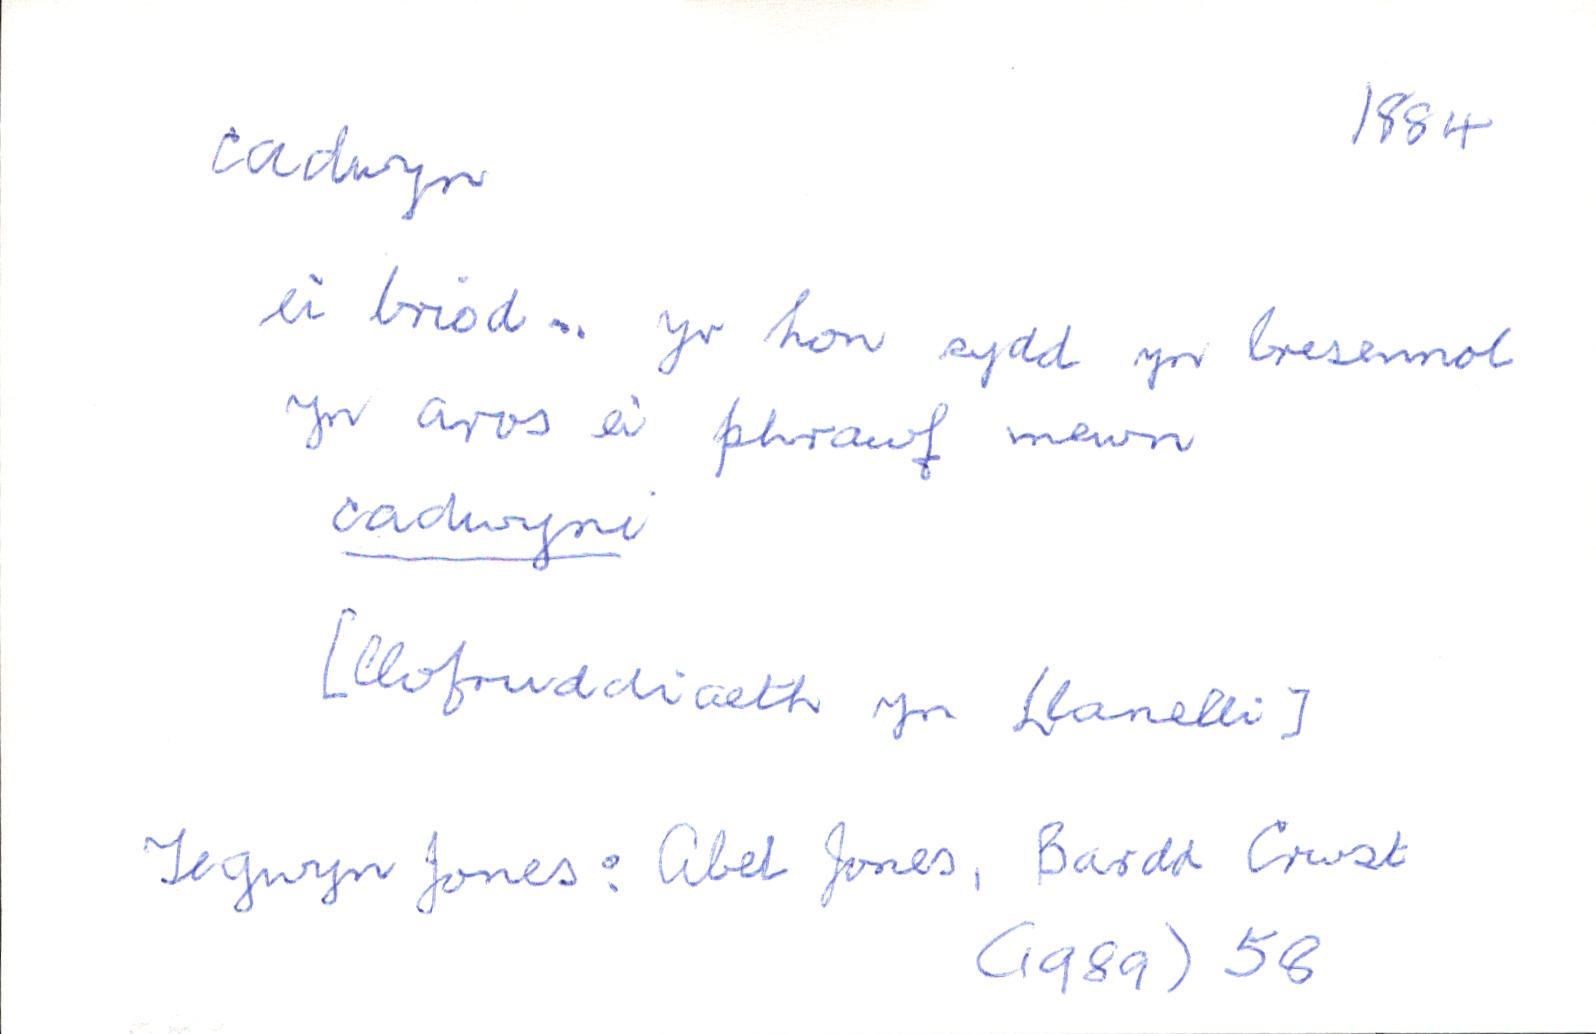 1884
cadwyn
ei briod... yr hon sydd yn bresennol
yn aros ei phrawf mewn
cadwyni
[llofruddiaeth yn Llanelli]
Tegwyn Jones: Abel Jones, Bardd Crwst
(1989) 58